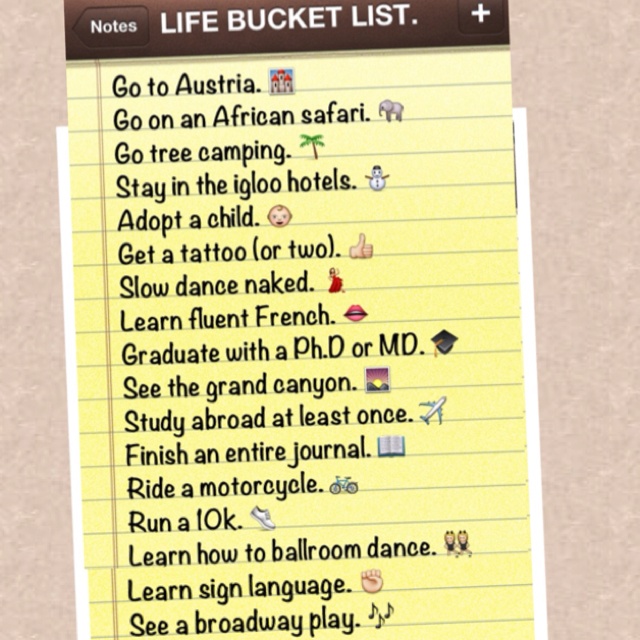 Notes
LIFE BUCKET LIST. +
Go to Austria. 🏰
Go on an African safari. 🐘
Go tree camping. 🌴
Stay in the igloo hotels. ⛄
Adopt a child. 👶
Get a tattoo (or two). 👍
Slow dance naked. 💃
Learn fluent French. 👄
Graduate with a Ph.D or MD. 🎓
See the grand canyon. 🌄
Study abroad at least once. ✈️
Finish an entire journal. 📖
Ride a motorcycle. 🚲
Run a 10k. 👟
Learn how to ballroom dance. 👯
Learn sign language. ✊
See a broadway play. 🎶